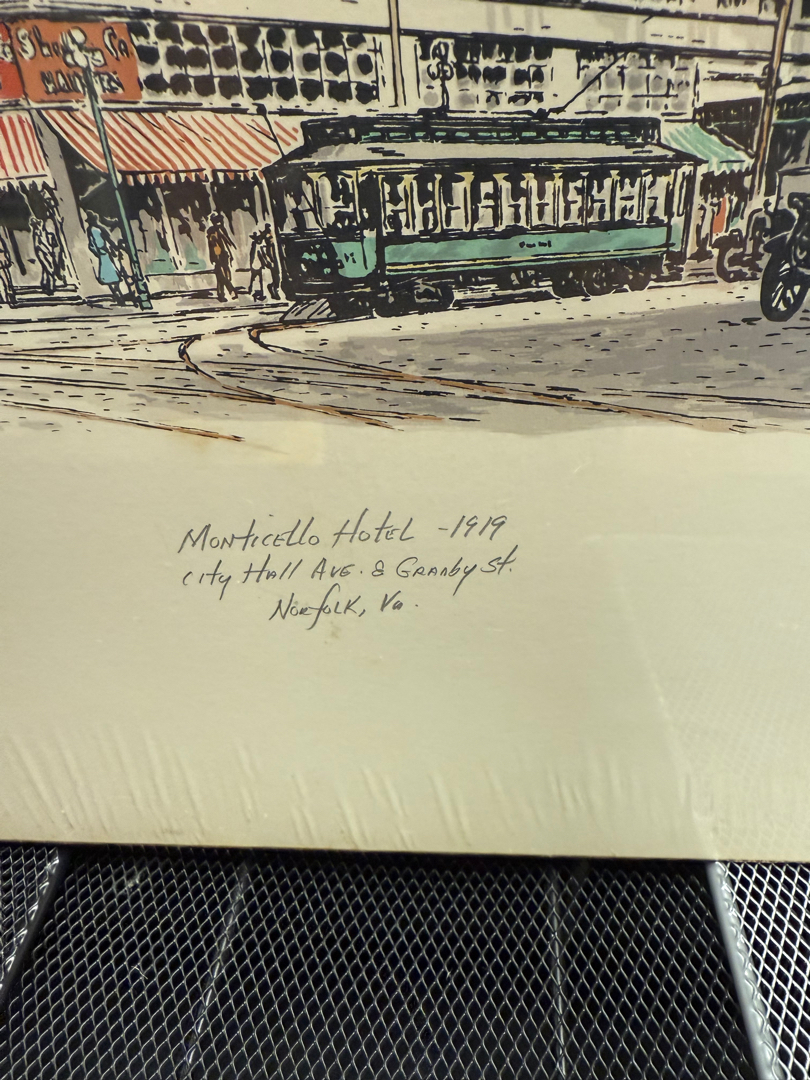 Monticello Hotel - 1919
City Hall Ave. & Granby St.
Norfolk, Va.